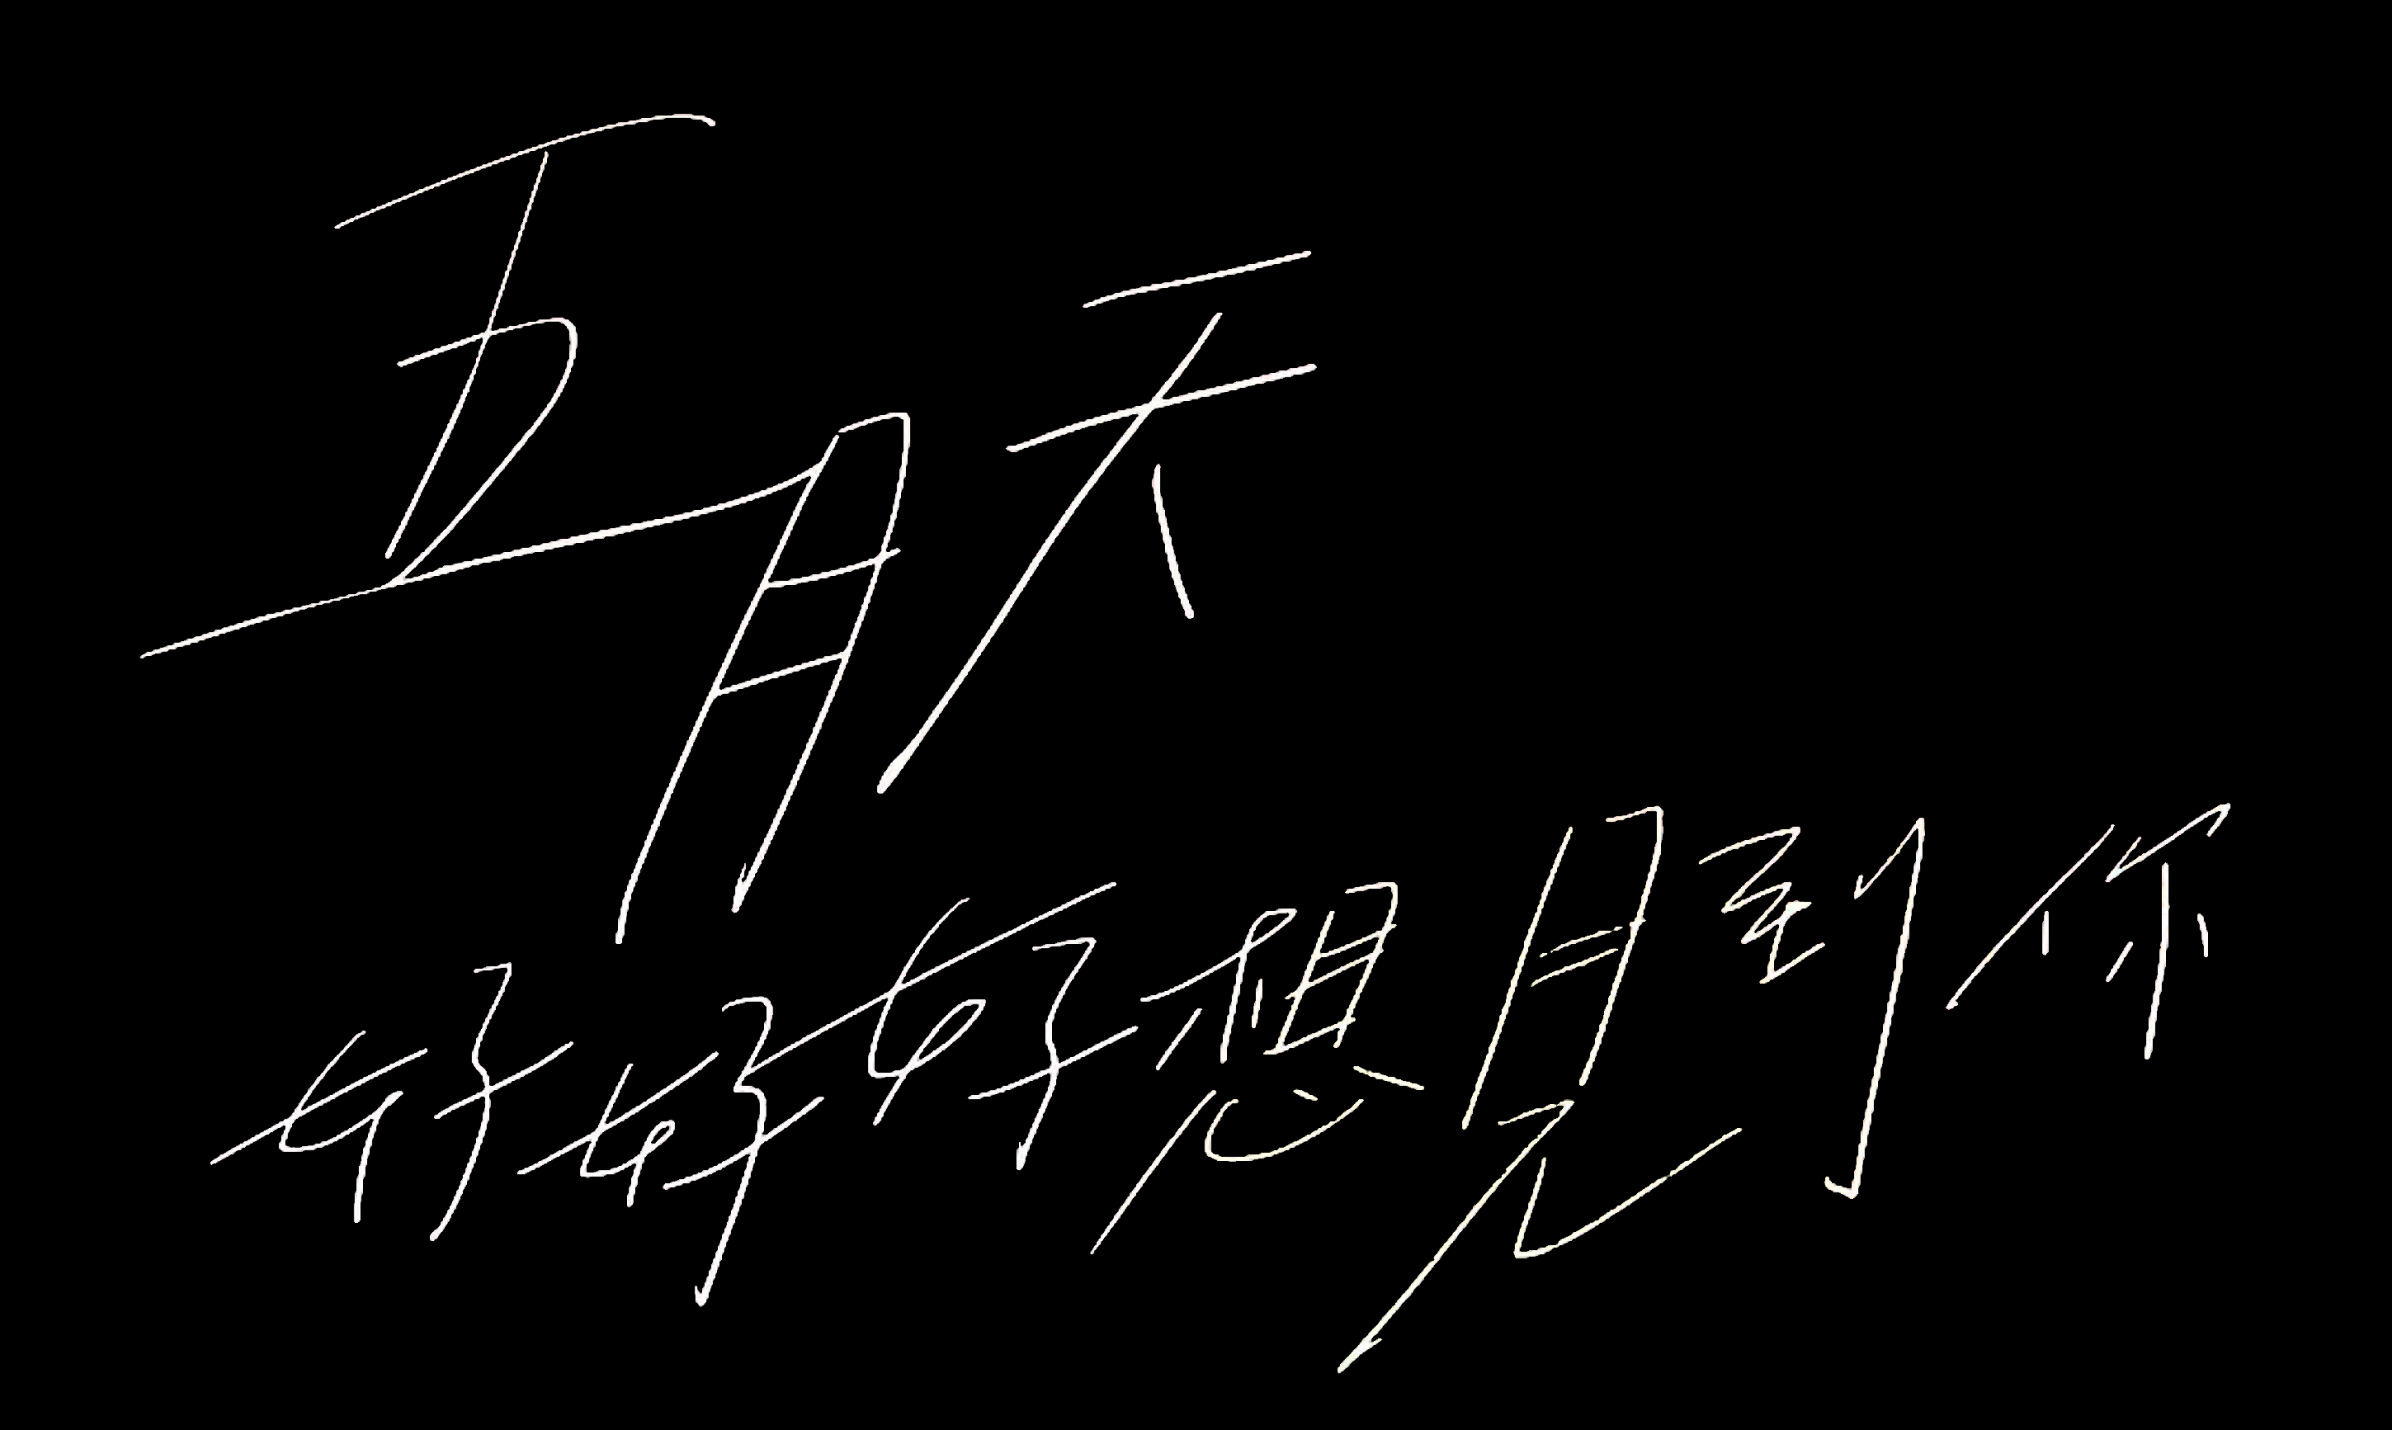 五月天
好好好想見到你